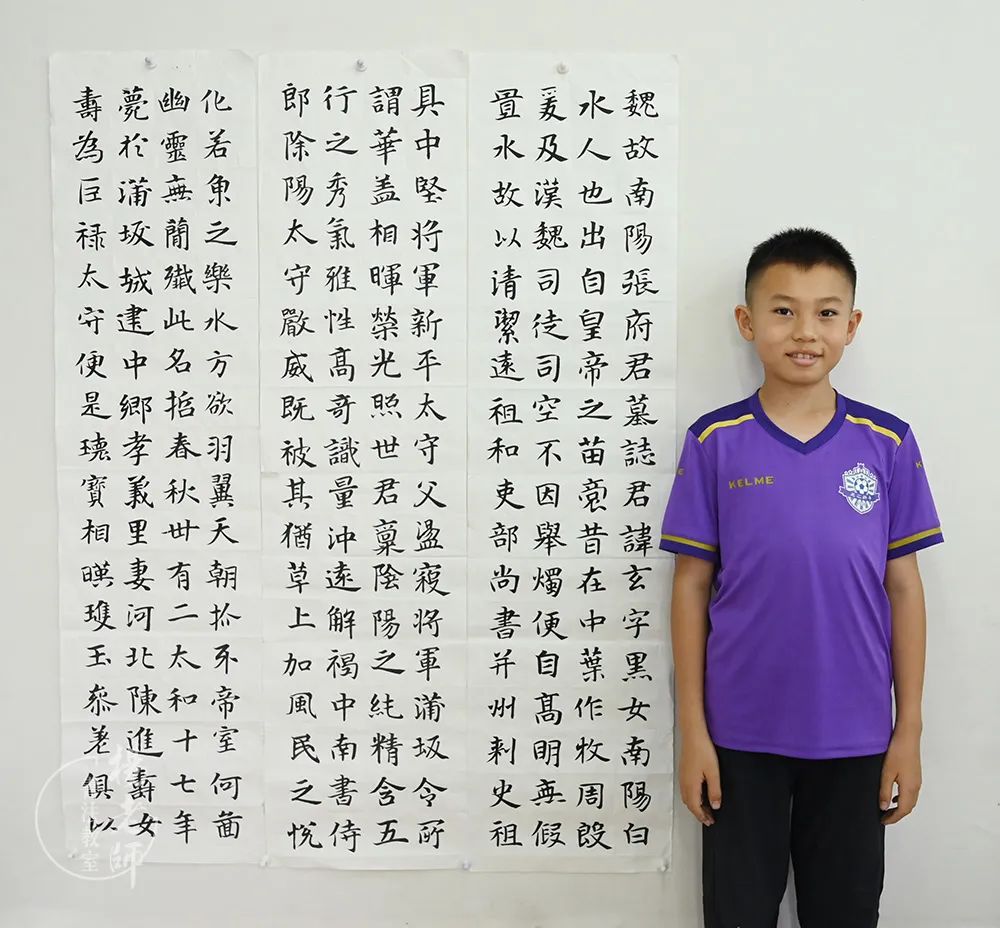 魏故南陽張府君墓誌君諱玄字黑女南陽白
水人也出自皇帝之苗裔昔在中葉作牧周殷
爰及漢魏司徒司空不因舉燭便自高明無假
置水故以清潔遠祖和吏部尚書并州刺史祖
具中堅將軍新平太守父盪寇將軍蒲坂令所
謂華蓋相暉榮光照世君稟陰陽之純精含五
行之秀氣雅性高奇識量沖遠解褐中南書侍
郎除陽太守嚴威既被其猶草上加風民之悅
化若魚之樂水方欲羽翼天朝抓牙帝室何啚
幽靈無簡殲此名哲春秋卅有二太和十七年
薨於蒲坂城建中鄉孝義里妻河北陳進壽女
壽為巨祿太守便是瓌寶相暎瓊玉參差俱以
KELME